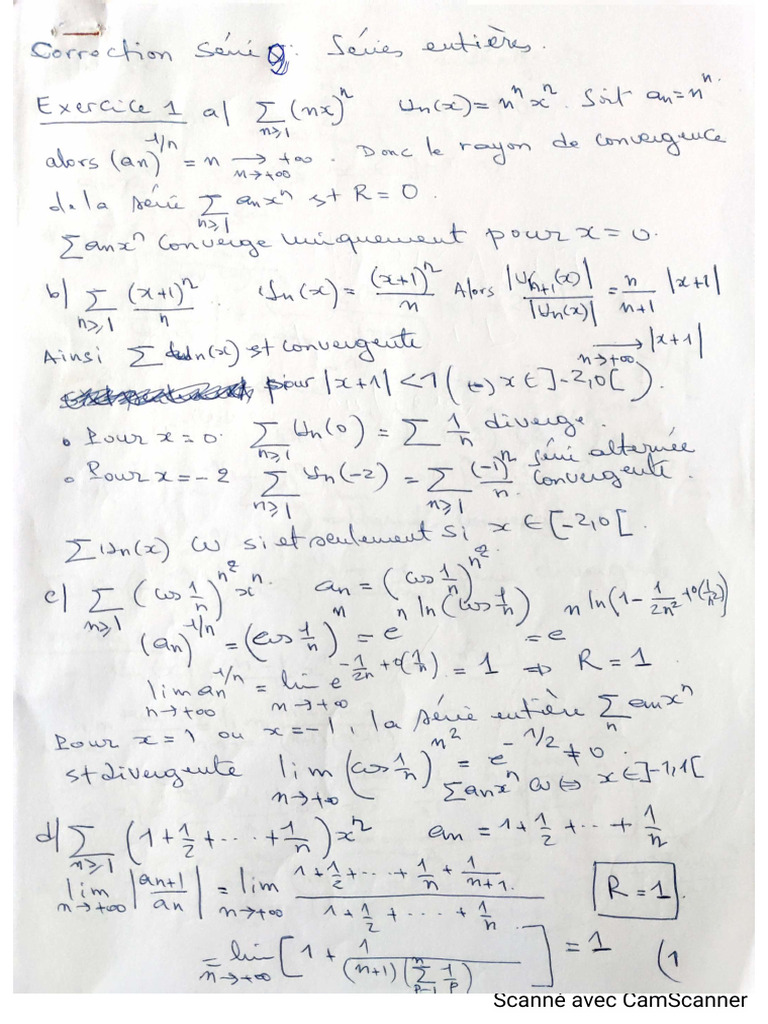 Correction Série 9: Séries entières.
Exercice 1 a/ ∑_{n≥1} (nx)^n Un(x) = n^n x^n. Soit an = n^n.
alors (an)^{1/n} = n ⟶_{n→+∞} +∞. Donc le rayon de convergence
de la série ∑_{n≥1} an x^n st R = 0.
∑ an x^n converge uniquement pour x = 0.
b/ ∑_{n≥1} (x+1)^n/n. Un(x) = (x+1)^n/n Alors |Un+1(x)|/|Un(x)| = n/(n+1) |x+1|
⟶_{n→+∞} |x+1|
Ainsi ∑ Un(x) st convergente
pour |x+1| < 1 (↔) x ∈ ]-2,0[ ).
• Pour x = 0. ∑_{n≥1} Un(0) = ∑ 1/n diverge.
• Pour x = -2 ∑_{n≥1} Un(-2) = ∑_{n≥1} (-1)^n/n. série alternée convergente.
∑ Un(x) cv si et seulement si x ∈ [-2,0[.
c/ ∑_{n≥1} (cos 1/n)^{n²} x^n. an = (cos 1/n)^{n²}
(an)^{1/n} = (cos 1/n)^n = e^{n ln(cos 1/n)} = e^{n ln(1 - 1/2n² + o(1/n²))}
lim_{n→+∞} an^{1/n} = lim_{n→+∞} e^{-1/2n + o(1/n)} = 1 ⇒ R = 1.
Pour x = 1 ou x = -1, la série entière ∑_n an x^n
st divergente lim_{n→+∞} (cos 1/n)^{n²} = e^{-1/2} ≠ 0.
∑ an x^n cv ⇔ x ∈ ]-1,1[
d/ ∑_{n≥1} (1 + 1/2 + ... + 1/n) x^n an = 1 + 1/2 + ... + 1/n
lim_{n→+∞} |an+1/an| = lim_{n→+∞} (1 + 1/2 + ... + 1/n + 1/(n+1).)/(1 + 1/2 + .... + 1/n) R = 1.
= lim_{n→+∞} [1 + 1/((n+1)(∑_{p=1}^{n} 1/p))] = 1 (1
Scanné avec CamScanner